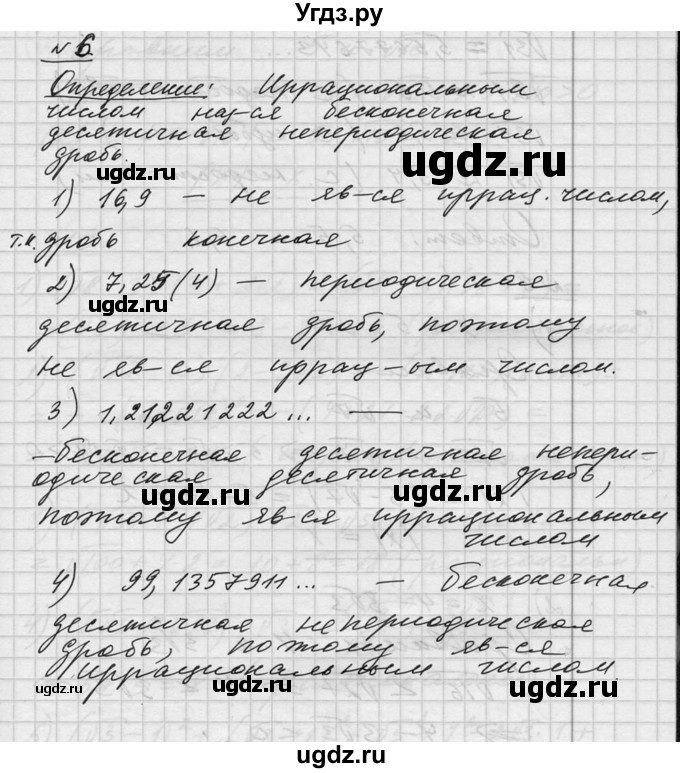 Угдз.ру
№ 6.
Определение: Иррациональным
числом наз-ся бесконечная
десятичная непериодическая
дробь.
ugdz.ru
ugdz.ru
1) 16,9 — не яв-ся иррац. числом,
т.к. дробь конечная
2) 7,25(4) — периодическая
ugdz.ru
десятичная дробь, поэтому
ugdz.ru
не яв-ся иррац-ым числом.
3) 1,21221222... —
—бесконечная десятичная непери-
одическая десятичная дробь,
ugdz.ru ugdz.ru
поэтому яв-ся иррациональным
числом
4) 99,1357911... — бесконечная
десятичная непериодическая
ugdz.ru
дробь, поэтому яв-ся
иррациональным числом.
ugdz.ru ugdz.ru ugdz.ru
ugdz.ru